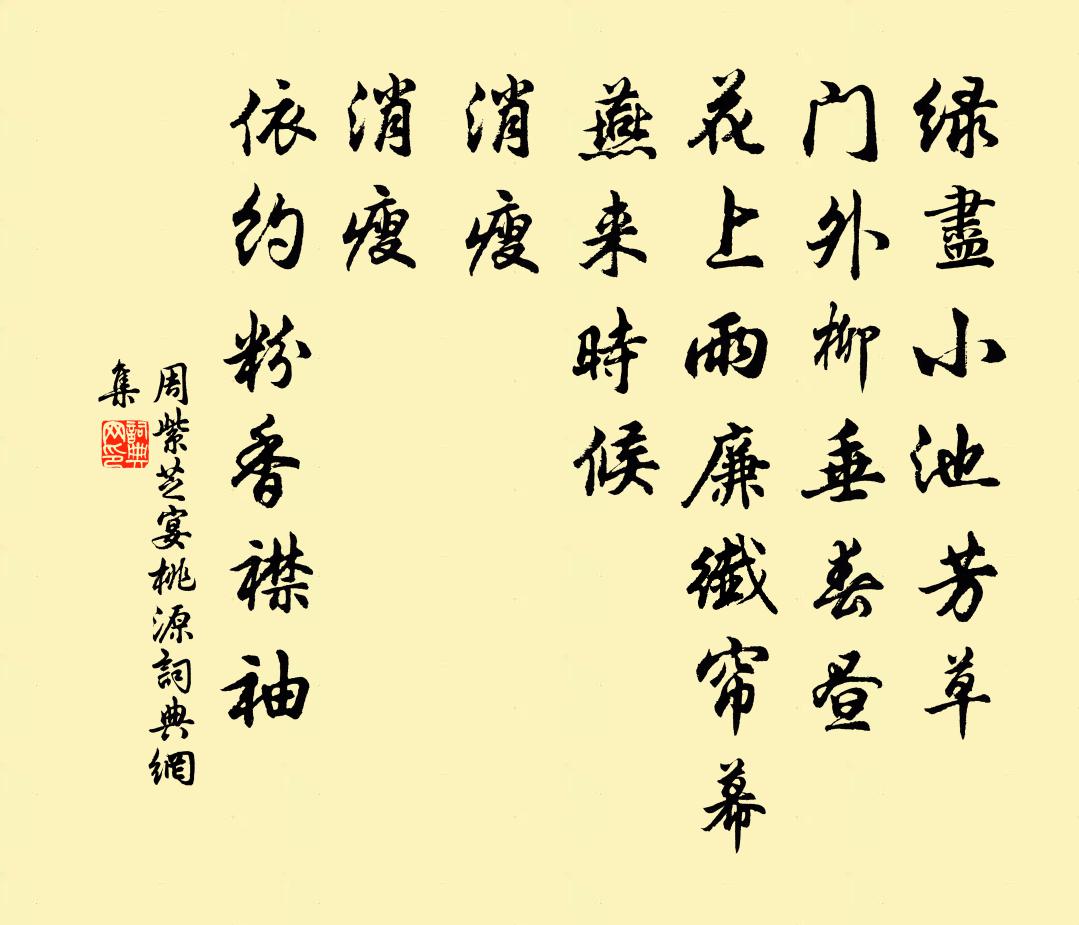 绿盡小池芳草
门外柳垂春昼
花上雨廉纖帘幕
燕来時候
消瘦
消瘦
依约粉香襟袖
周紫芝宴桃源詞典網
集
詞典
网印